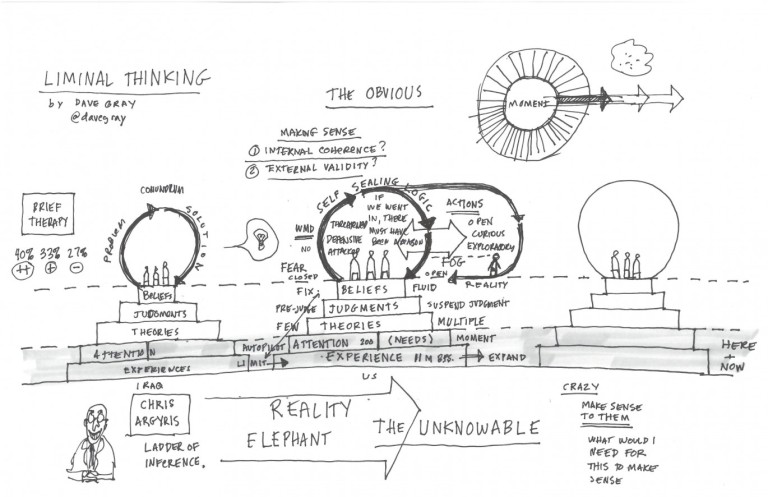 LIMINAL THINKING
by DAVE GRAY
@davegray
THE OBVIOUS
MAKING SENSE
① INTERNAL COHERENCE?
② EXTERNAL VALIDITY?
MOMENT
BRIEF
THERAPY
40% 33% 27%
++ + -
CONUNDRUM
PROBLEM
SOLUTION
BELIEFS
JUDGMENTS
THEORIES
ATTENTION
EXPERIENCES
SELF SEALING LOGIC
IF
WE WENT
IN, THERE
MUST HAVE
BEEN A REASON
THREATENED
DEFENSIVE
ATTACKED
WMD
NO
ACTIONS
OPEN
CURIOUS
EXPLORATORY
FOG
OPEN
REALITY
FEAR
CLOSED
FIX
BELIEFS
FLUID
PRE-JUDGE
JUDGMENTS
SUSPEND JUDGMENT
FEW
THEORIES
MULTIPLE
AUTOPILOT
ATTENTION 200 (NEEDS)
MOMENT
LIMIT
EXPERIENCE 11 M BPS.
EXPAND
HERE
+
NOW
US
IRAQ
CHRIS
ARGYRIS
LADDER OF
INFERENCE.
REALITY
ELEPHANT
THE UNKNOWABLE
CRAZY
MAKE SENSE
TO THEM
WHAT WOULD I
NEED FOR
THIS TO MAKE
SENSE